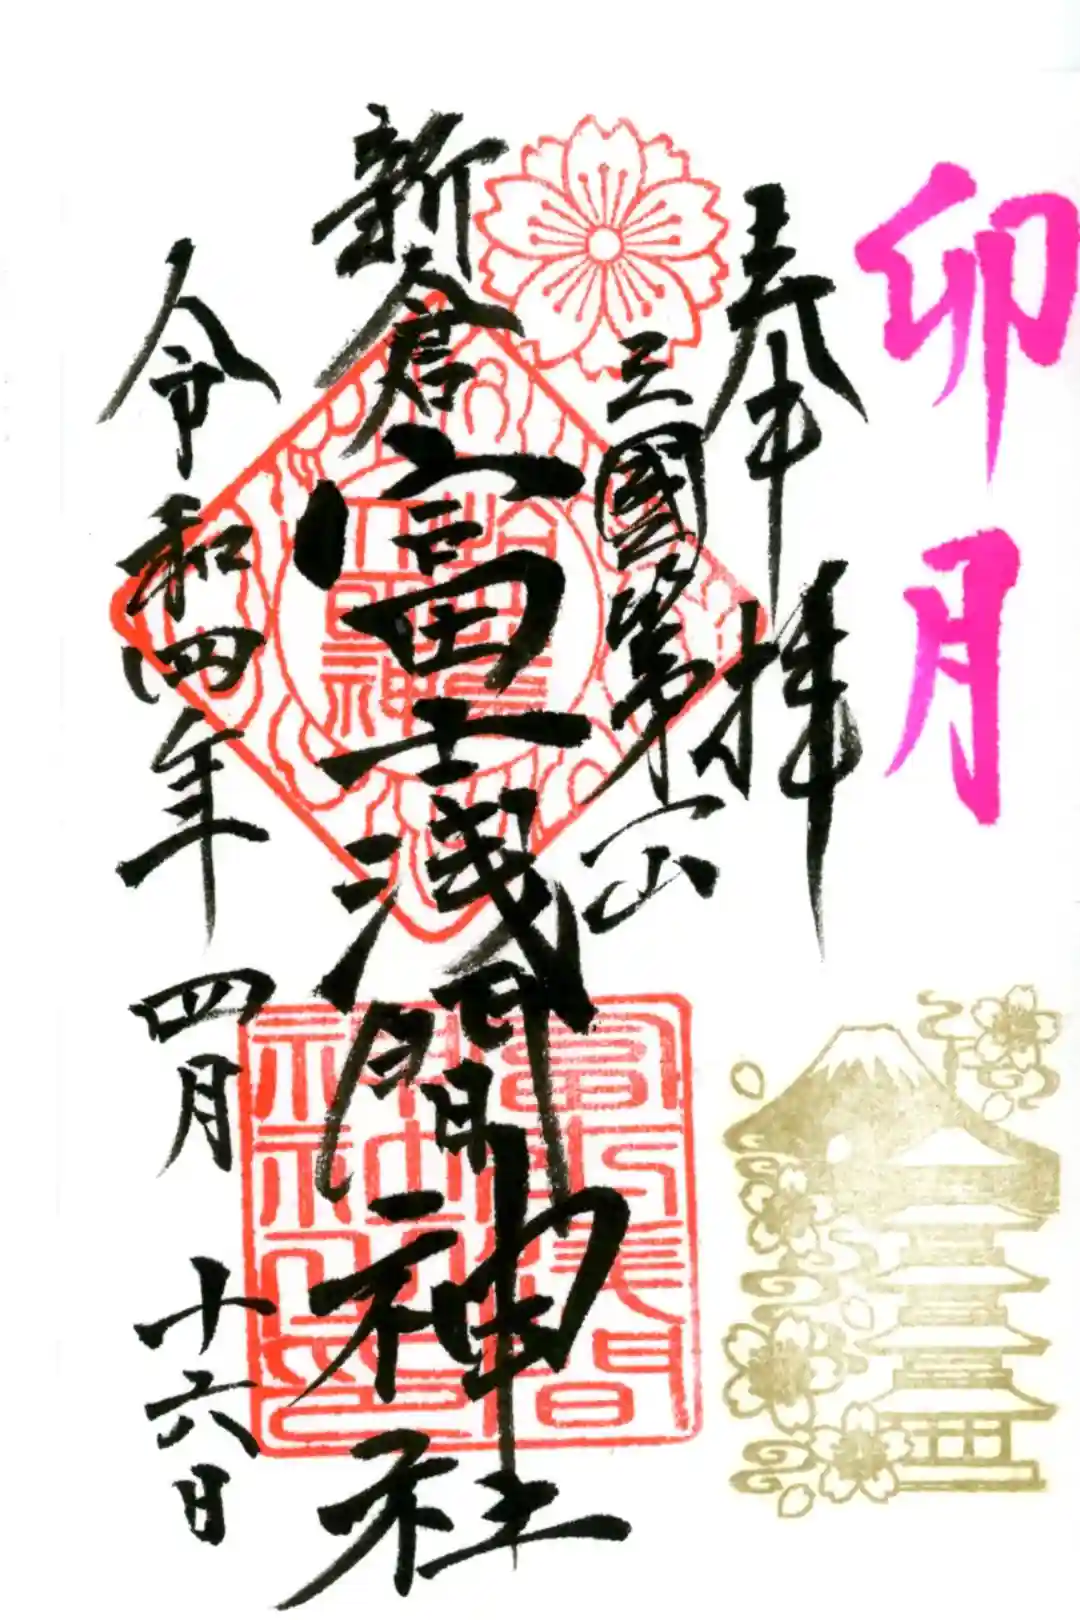 卯月
奉拝
三國第一山
新倉富士浅間神社
令和四年四月十六日